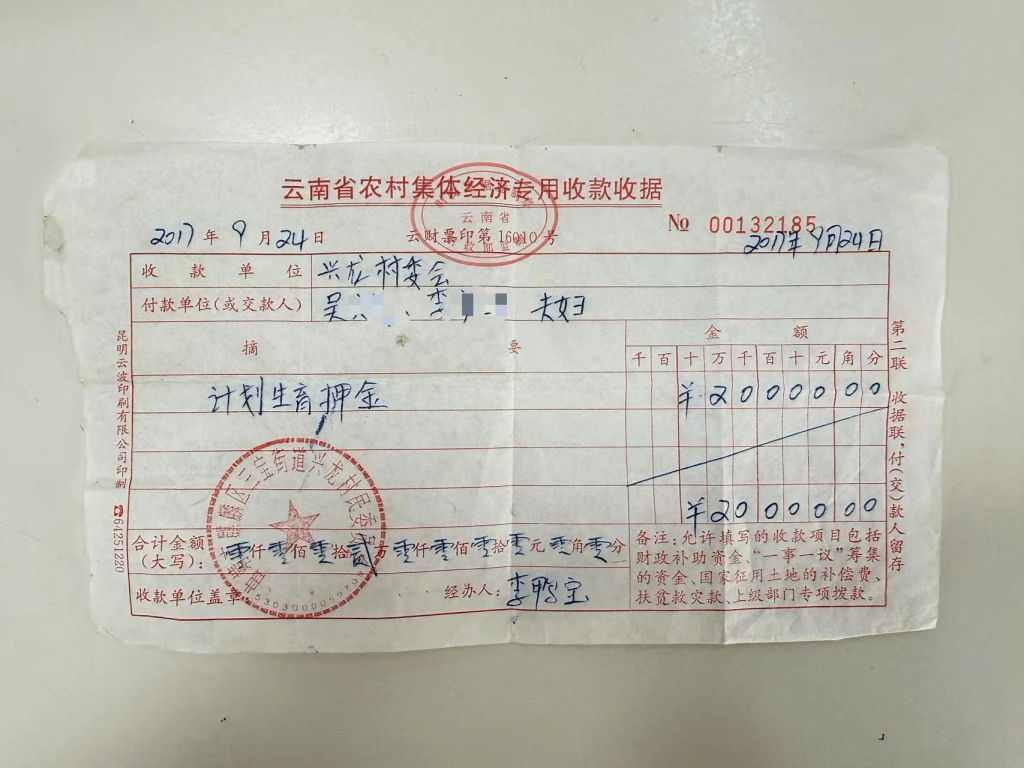 云南省农村集体经济专用收款收据
云南省
№ 00132185
2017年9月24日
云财票印第16010号
2017年9月24日
收款单位 兴龙村委会
付款单位(或交款人) 吴 、李 夫妇
摘要 金额
千百十万千百十元角分
计划生育押金 ¥2000000
¥2000000
曲靖市麒麟区三宝街道兴龙村民委员会
合计金额(大写): 零仟零佰零拾贰万零仟零佰零拾零元零角零分
收款单位盖章
经办人:李鸭宝
备注:允许填写的收款项目包括
财政补助资金、“一事一议”筹集
的资金、国家征用土地的补偿费、
扶贫救灾款、上级部门专项拨款。
第二联 收据联,付(交)款人留存
昆明云波印刷有限公司印制 ☎64251220